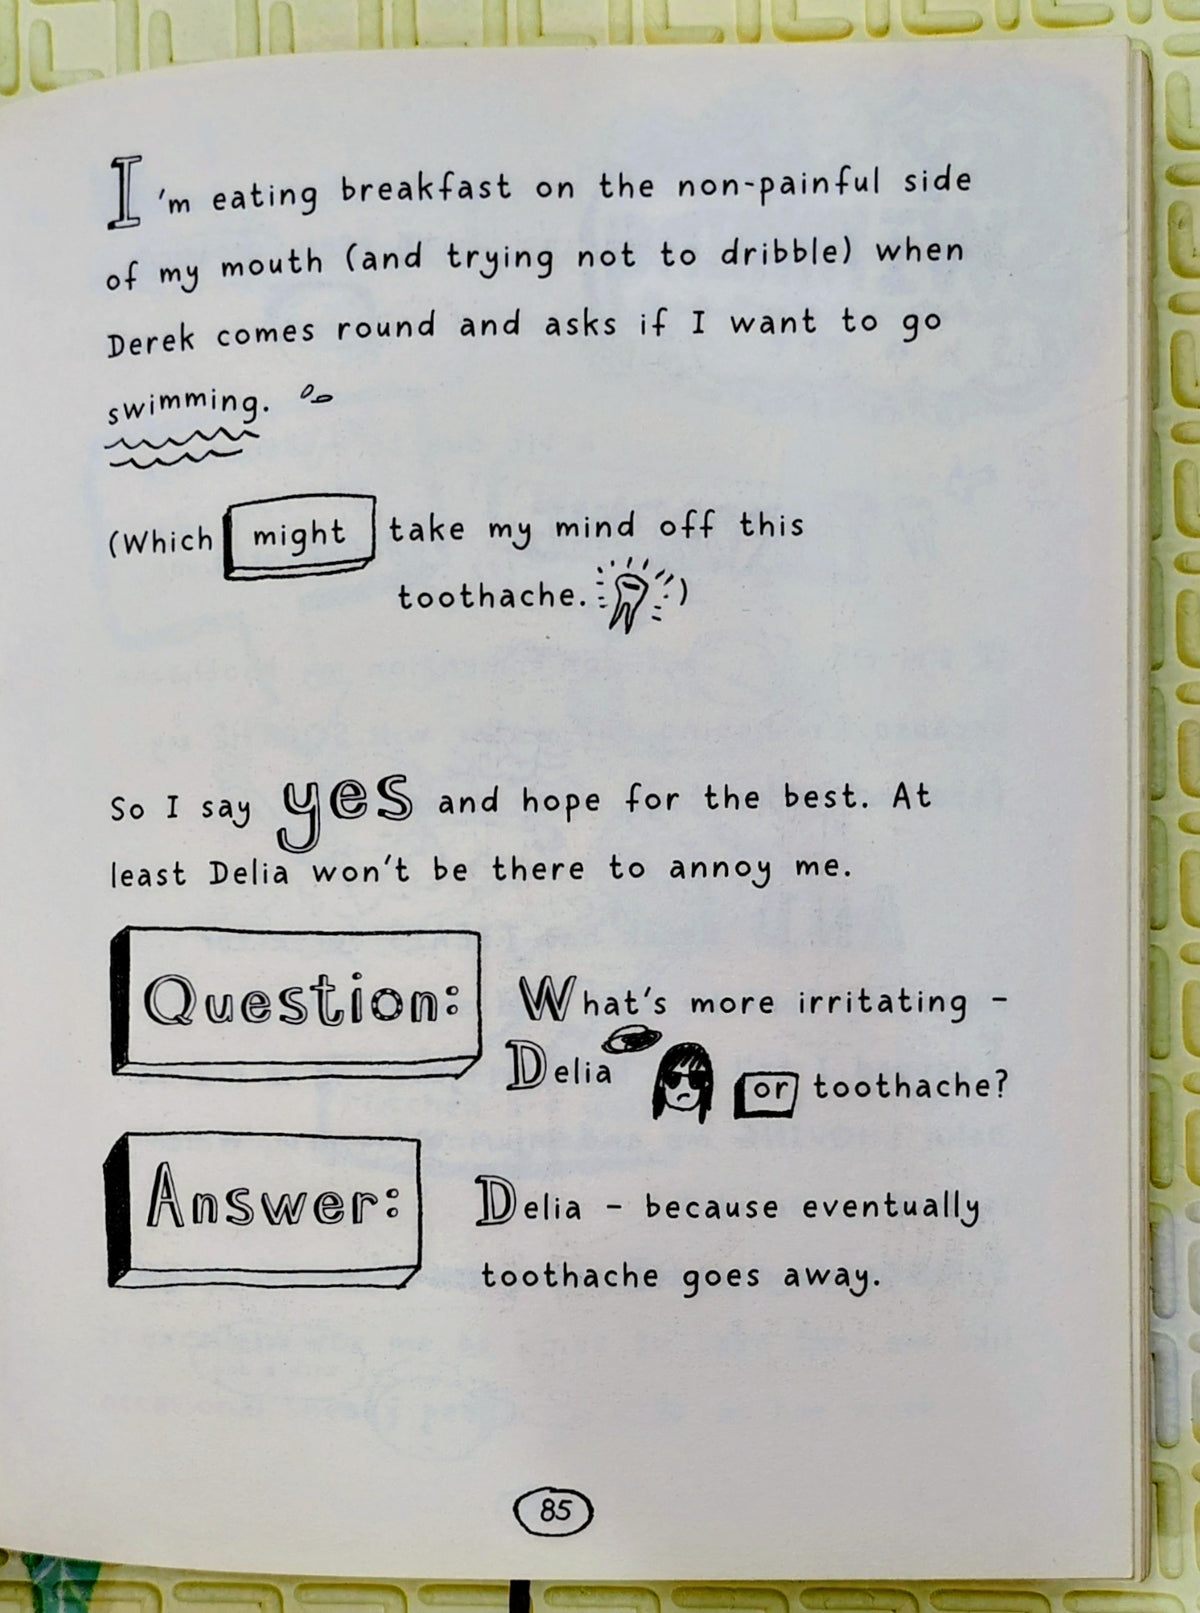 I'm eating breakfast on the non-painful side
of my mouth (and trying not to dribble) when
Derek comes round and asks if I want to go
swimming.
(Which might take my mind off this
toothache.)
So I say yes and hope for the best. At
least Delia won't be there to annoy me.
Question: What's more irritating -
Delia or toothache?
Answer: Delia - because eventually
toothache goes away.
85